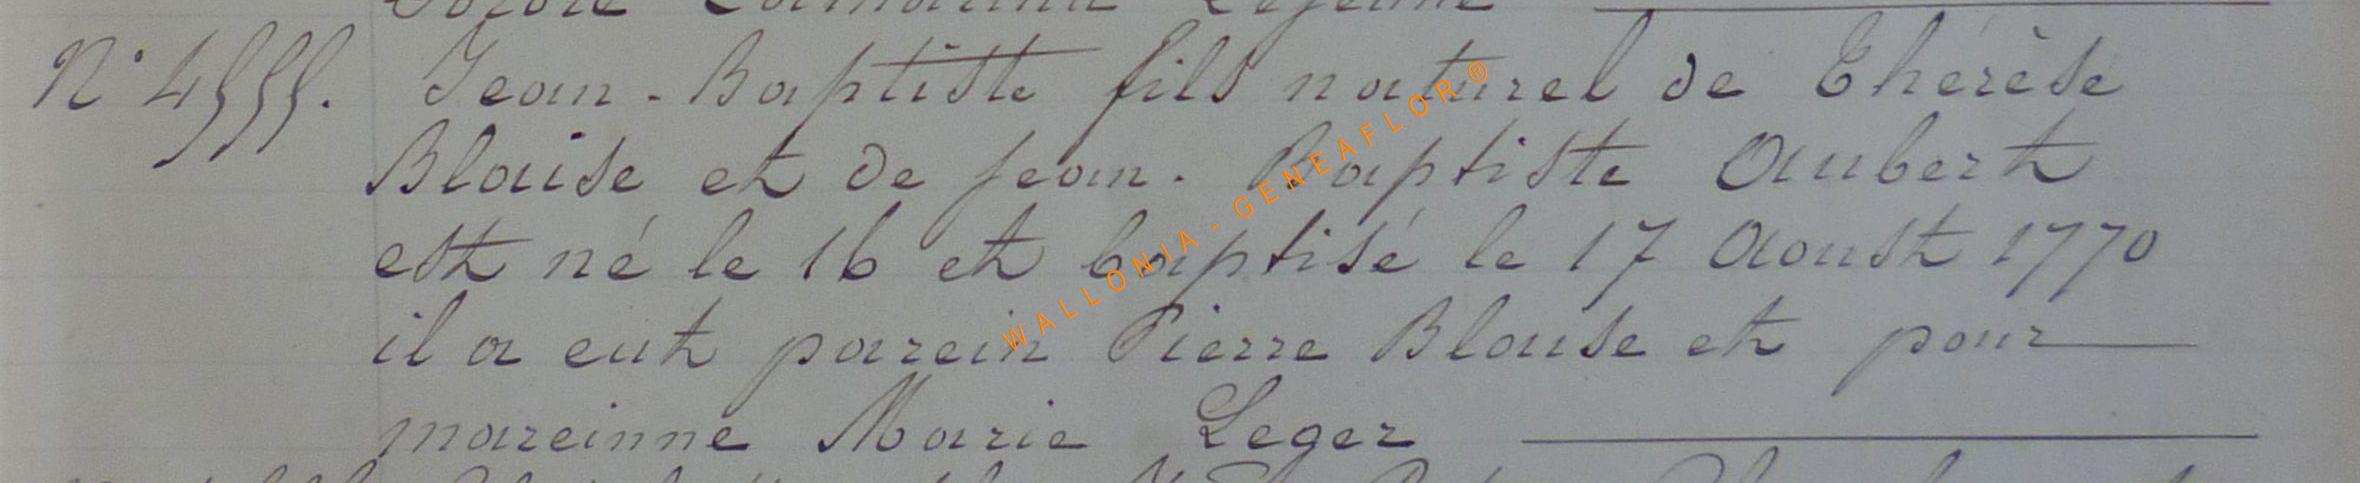 N° 4555. Jean-Baptiste fils naturel de Thérèse
Blaise et de Jean-Baptiste Aubert
est né le 16 et baptisé le 17 Aoust 1770
il a eut parein Pierre Blaise et pour
mareinne Marie Leger
WALLONIA - GENEAFLOR ®